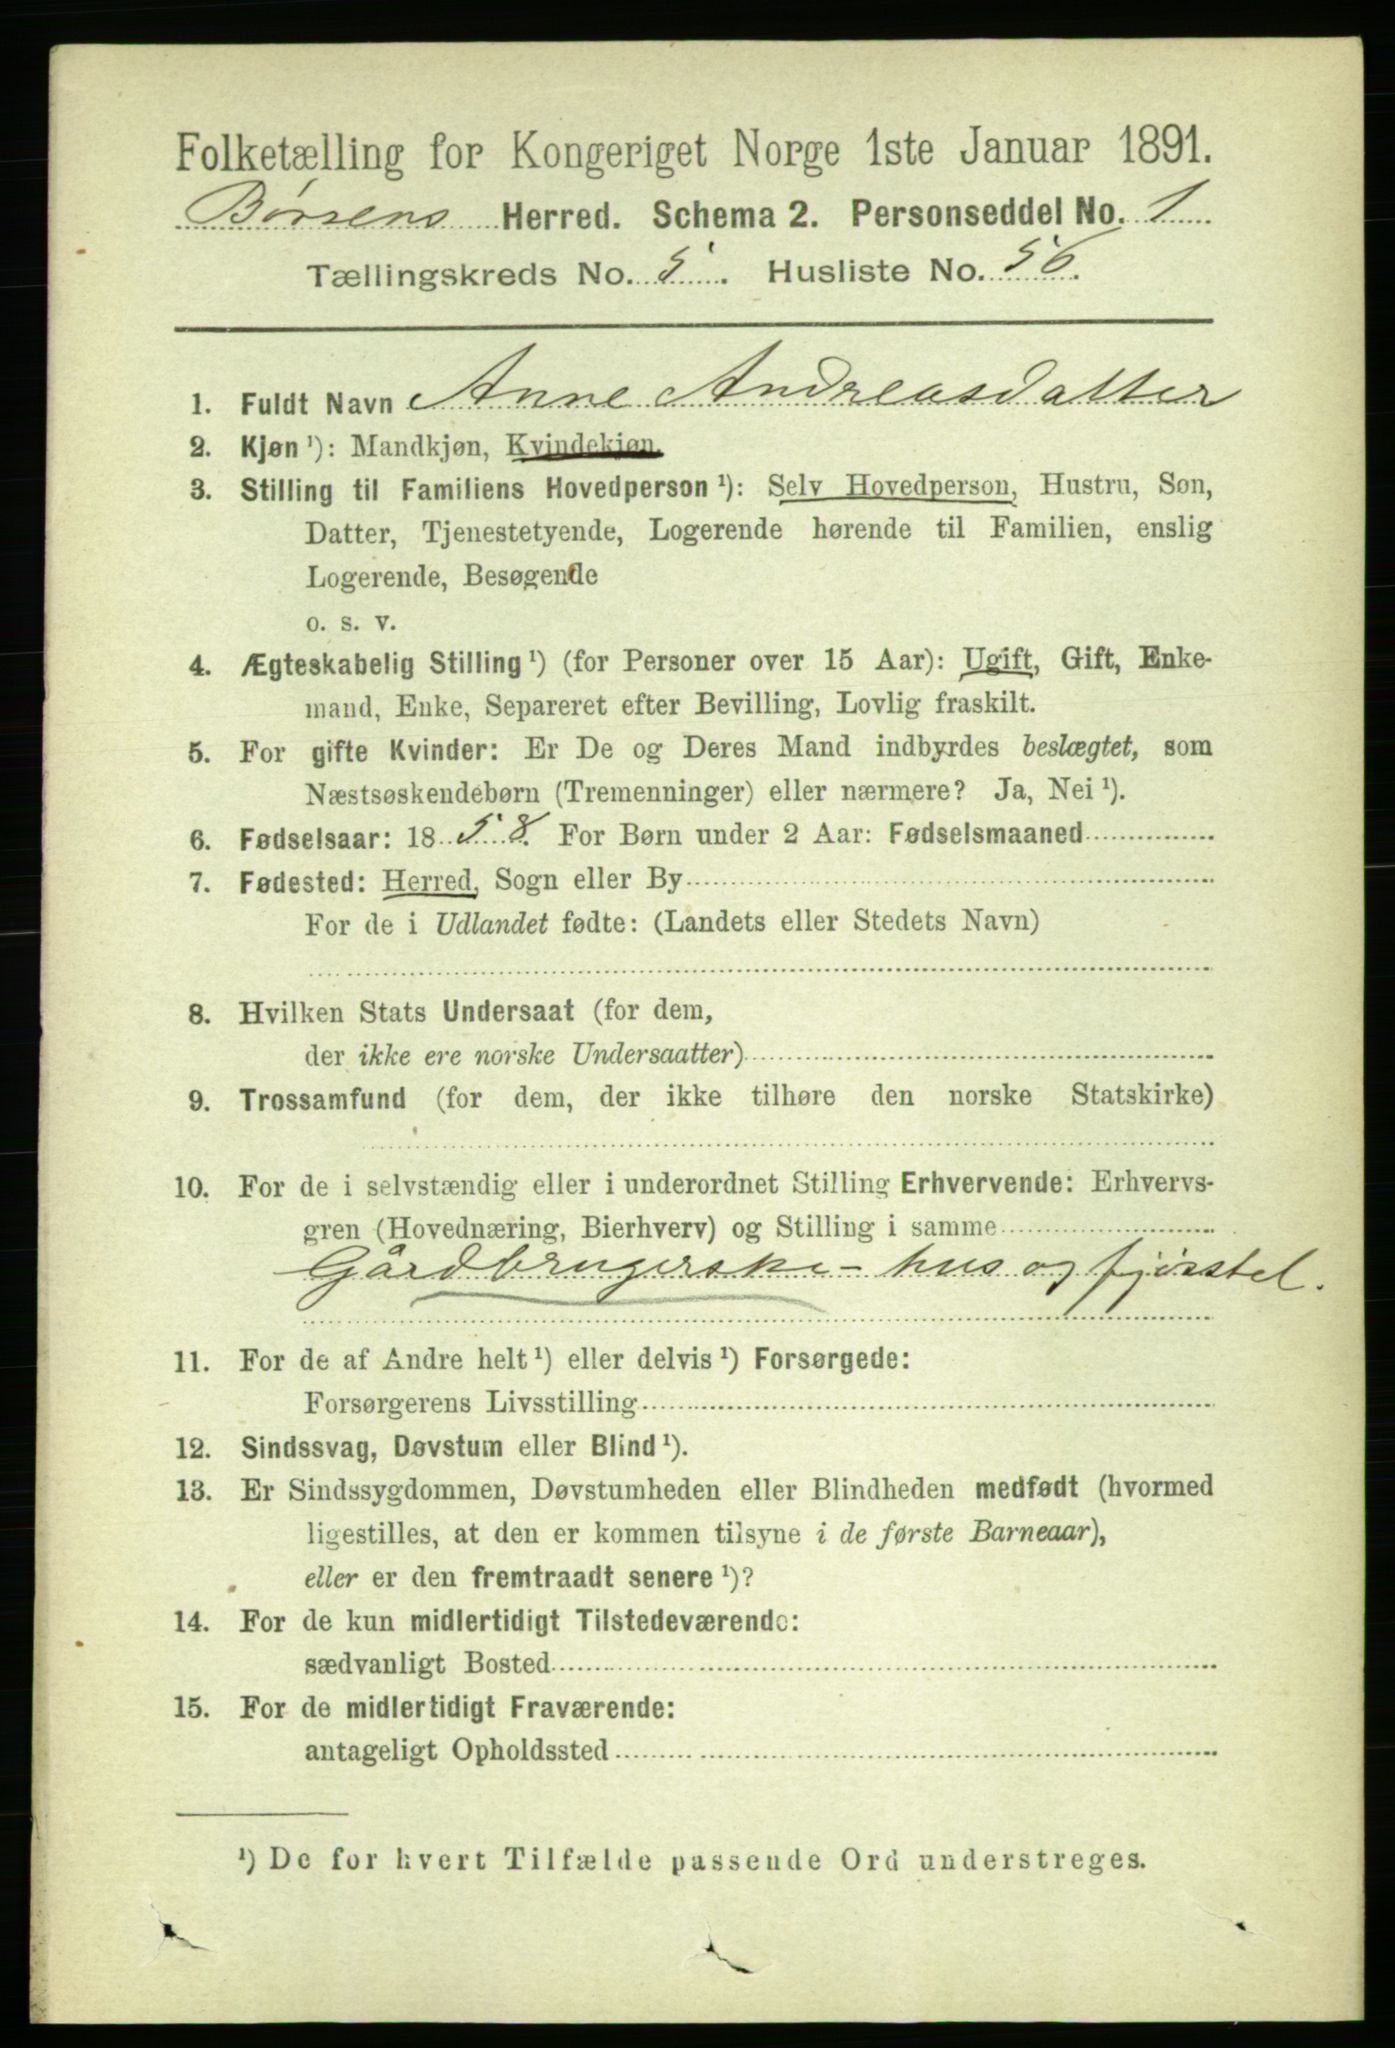 Folketælling for Kongeriget Norge 1ste Januar 1891.
Børsens Herred. Schema 2. Personseddel No. 1
Tællingskreds No. 5. Husliste No. 56.
1. Fuldt Navn Anne Andreasdatter
2. Kjøn ¹): Mandkjøn, Kvindekjøn.
3. Stilling til Familiens Hovedperson ¹): Selv Hovedperson, Hustru, Søn,
Datter, Tjenestetyende, Logerende hørende til Familien, enslig
Logerende, Besøgende
o. s. v.
4. Ægteskabelig Stilling ¹) (for Personer over 15 Aar): Ugift, Gift, Enke-
mand, Enke, Separeret efter Bevilling, Lovlig fraskilt.
5. For gifte Kvinder: Er De og Deres Mand indbyrdes beslægtet, som
Næstsøskendebørn (Tremenninger) eller nærmere? Ja, Nei ¹).
6. Fødselsaar: 1858. For Børn under 2 Aar: Fødselsmaaned
7. Fødested: Herred, Sogn eller By
For de i Udlandet fødte: (Landets eller Stedets Navn)
8. Hvilken Stats Undersaat (for dem,
der ikke ere norske Undersaatter)
9. Trossamfund (for dem, der ikke tilhøre den norske Statskirke)
10. For de i selvstændig eller i underordnet Stilling Erhvervende: Erhvervs-
gren (Hovednæring, Bierhverv) og Stilling i samme
Gårdbrugerske - hus og fjøsstel.
11. For de af Andre helt ¹) eller delvis ¹) Forsørgede:
Forsørgerens Livsstilling
12. Sindssvag, Døvstum eller Blind ¹).
13. Er Sindssygdommen, Døvstumheden eller Blindheden medfødt (hvormed
ligestilles, at den er kommen tilsyne i de første Barneaar),
eller er den fremtraadt senere ¹)?
14. For de kun midlertidigt Tilstedeværende:
sædvanligt Bosted
15. For de midlertidigt Fraværende:
antageligt Opholdssted
¹) De for hvert Tilfælde passende Ord understreges.